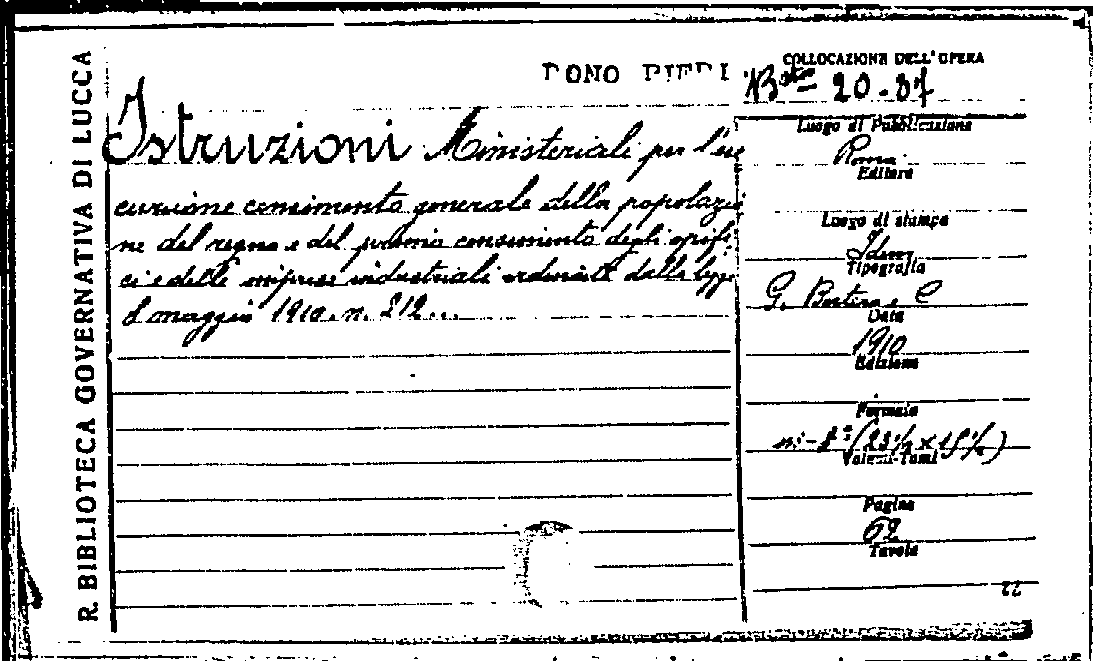 R. BIBLIOTECA GOVERNATIVA DI LUCCA
DONO PIERI
COLLOCAZIONE DELL'OPERA
20-37
Istruzioni Ministeriali per l'ese
cuzione censimento generale della popolazio
ne del regno e del primo censimento degli opifi
ci e delle imprese industriali ordinate dalla legge
8 maggio 1910. n. 212...
Luogo di Pubblicazione
Roma
Editore
Luogo di stampa
Idem
Tipografia
G. Bertero e C
Data
1910
Edizione
Formato
in-8° (23½ × 15½)
Volumi-Tomi
Pagine
62
Tavole
22